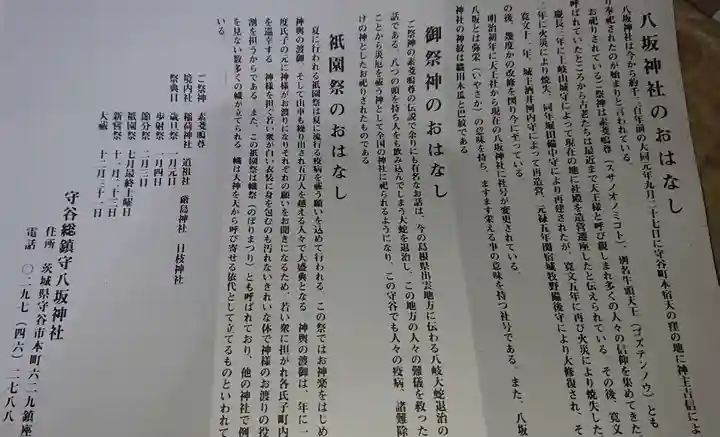 八坂神社のおはなし
八坂神社は今から約千二百年前の大同元年九月二十七日に守谷町本宿天の窪の地に神主吉信によ
り奉祀されたのが始まりと言われている。
お祀りされているご祭神は素戔嗚尊（スサノオノミコト）、別名牛頭天王（ゴズテンノウ）とも
呼ばれていたところから古老たちは最近まで天王様と呼び親しまれ多くの人々の信仰を集めてきた
慶長二年に土岐山城守によって現在の地に社殿を造営遷座したと伝えられている。その後、寛文
二年に火災により焼失、同年堀田備中守により再建されたが、寛文五年に再び火災により焼失した
寛文十一年、城主酒井河内守によって再造営、元禄五年関宿城牧野備後守により大修復され、そ
の後、幾度かの改修を図り今に至っている。
明治初年に天王社から現在の八坂神社に社号が変更されている。
八坂とは弥栄（いやさか）の意味を持ち、ますます栄える事の意味を持つ社号である。また、八坂
神社の神紋は織田木瓜と巴紋である。
御祭神のおはなし
ご祭神の素戔嗚尊の伝説で余りにも有名なお話は、今の島根県出雲地方に伝わる八岐大蛇退治の
話である。八つの頭を持ち人をも飲み込んでしまう大蛇を退治し、この地方の人々の難儀を救った
ことから災厄を祓う神として全国の神社に祀られるようになり、この守谷でも人々の疫病、諸難除
けの神としたお祀りされたものである。
祇園祭のおはなし
夏に行われる祇園祭は夏に流行る疫病を祓う願いを込めて行われる。この祭ではお神楽をはじめ
神輿の渡御、そして山車も繰り出され五万人を越える人々で大盛典となる。神輿の渡御は、年に一
度氏子の元に神様がお渡りになりそれぞれの願いをお聞きになるため、若い衆に担がれ各氏子町内
を巡幸する。神様を担ぐ若い衆が白い衣装に身を包むのも汚れないきれいな体で神様のお渡りの役
割を担うからである。また、この祇園祭は幟祭（のぼりまつり）とも呼ばれており、他の神社で例
を見ない数多くの幟が立てられる。幟は大神を天から呼び寄せる依代として立てるものといわれて
いる。
ご祭神　素戔嗚尊
境内社　稲荷神社　道祖神　厳島神社　日枝神社
祭典日　歳旦祭　一月元日
歩射祭　一月四日
節分祭　二月三日
祇園祭　七月最終土曜日
新嘗祭　十一月二十三日
大祓　十二月三十一日
守谷総鎮守八坂神社
住所　茨城県守谷市本町六二九鎮座
電話　〇二九七（四六）二七八八